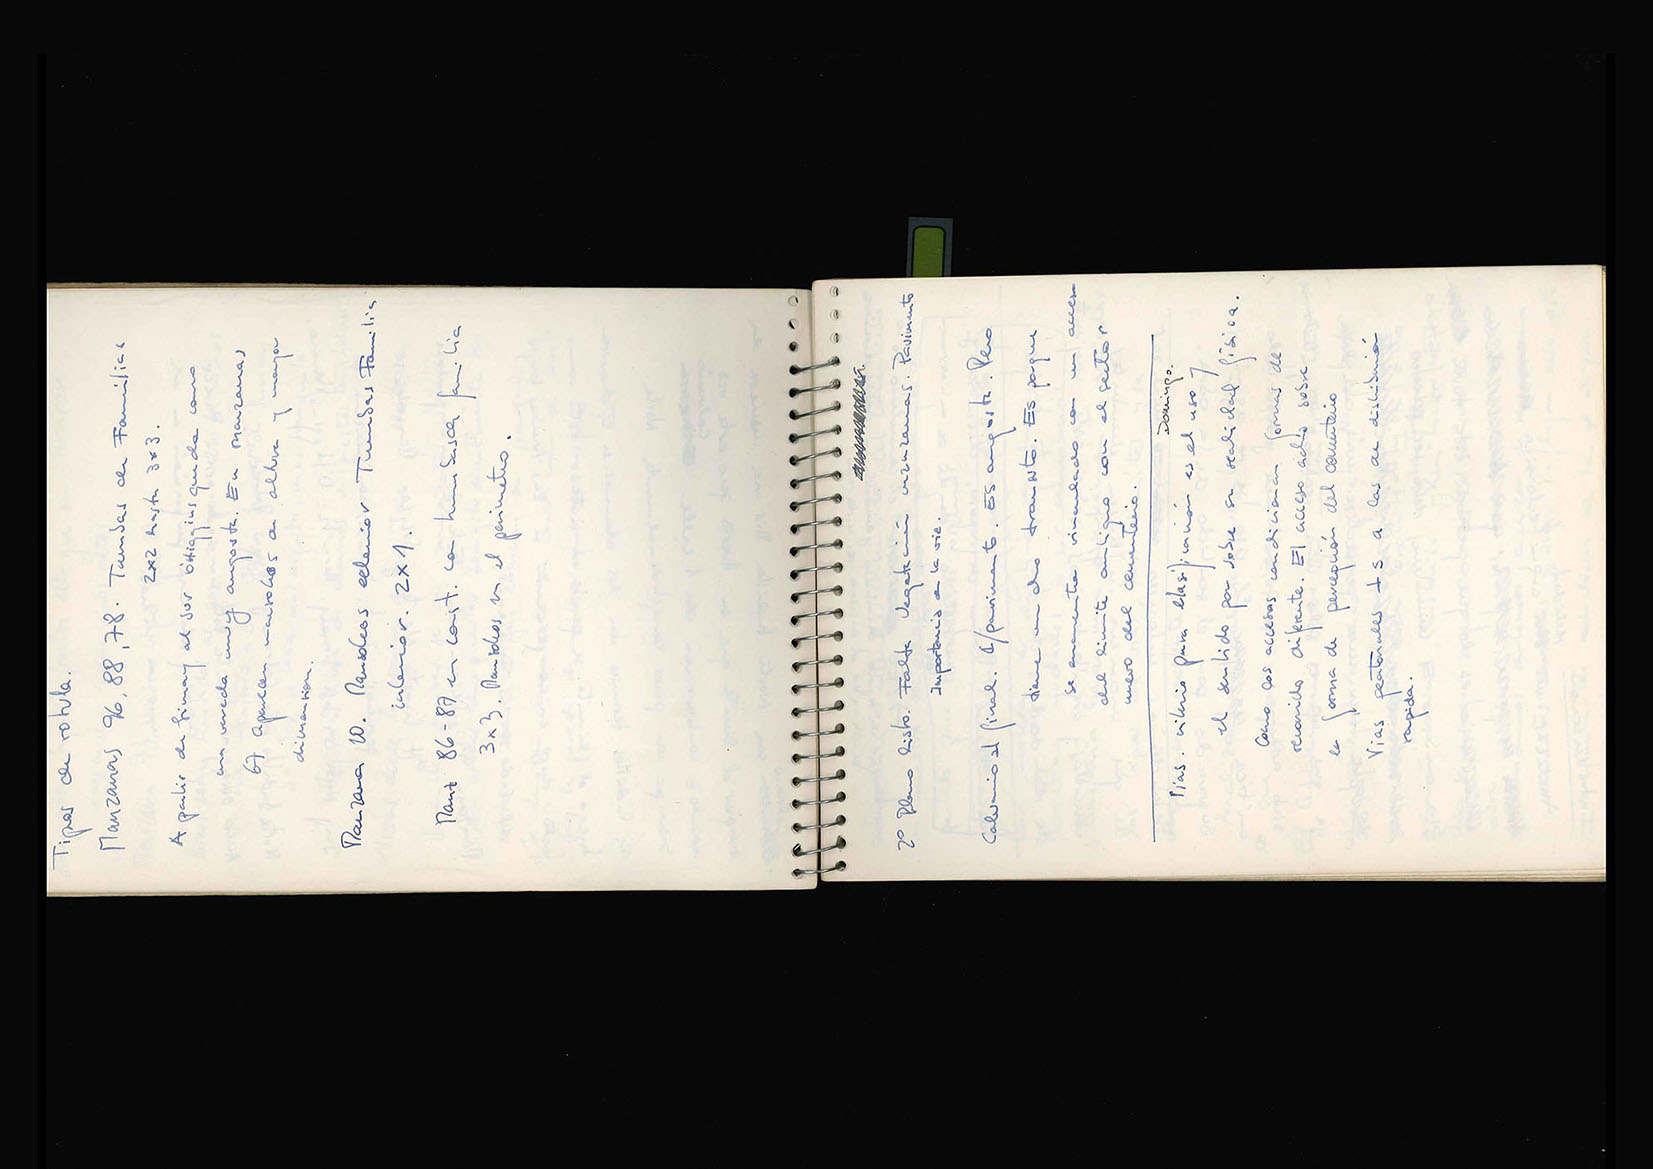 Tipos de rotula.
Manzanas 96, 88, 78. Tumbas de Familias
2x2 hasta 3x3.
A partir de Limay al sur queda como
una vereda muy angosta. En manzanas
67 aparecen mausoleos de altura y mayor
dimension.
Manzana 10. Mausoleos exterior Tumbas Familia
interior. 2x1.
Manz 86-87 en const. con familia
3x3. Mausoleos en el perimetro.
2º Plano listo. Falta Vegetación manzanas. Pavimento
Importancia de la vía.
Calvario al final. s/pavimento. Es angosta. Pero
tiene un alto transito. Es porque
se encuentra vinculado con un acceso
del limite antiguo con el sector
nuevo del cementerio.
Domingo.
Vías. criterio para clasificación es el uso y
el sentido por sobre su realidad física.
Como los accesos condicionan formas de
recorrido diferente. El acceso actúa sobre
la forma de percepción del cementerio
Vías peatonales +s a las de distribución
rapida.